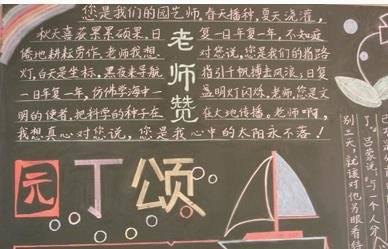 您是我们的园艺师,春天播种,夏天浇灌,
秋天喜获累累硕果。日复一日年复一年,不知疲
倦地耕耘劳作。老师我想对您说,您是我们的指路
灯,白天是坐标,黑夜来导航指引千帆搏击风浪;日复
一日年复一年,仿佛学海中一盏明灯闪烁。老师,您是文
明的使者,把科学的种子在大地传播。老师啊,
我想真心对您说,您是我心中的太阳永不落!
老师赞
园丁颂